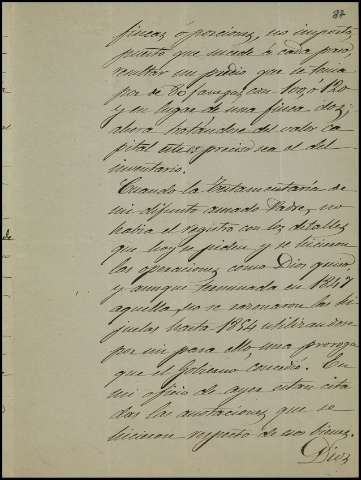 87
fincas ó porciones, no importa
puesto que sucede á cada paso
resultar un predio que se tenia
por de 80 fanegas con 100 ó 120
y en lugar de una finca dos;
ahora tratándose del valor ca-
pital este es preciso sea el del
inventario.
Cuando la testamentaría de
mi difunto amado Padre, no
habia el registro con los detalles
que hoy se piden y se hicieron
las operaciones como Dios quiso
y aunque terminada en 1847
aquella, no se razonaron las hi-
juelas hasta 1854 utilizandose
por mi para ello una proroga
que el Gobierno concedió. En
mi oficio de ayer estan cita
das las anotaciones que se
hicieron respecto de sus bienes.
Dios